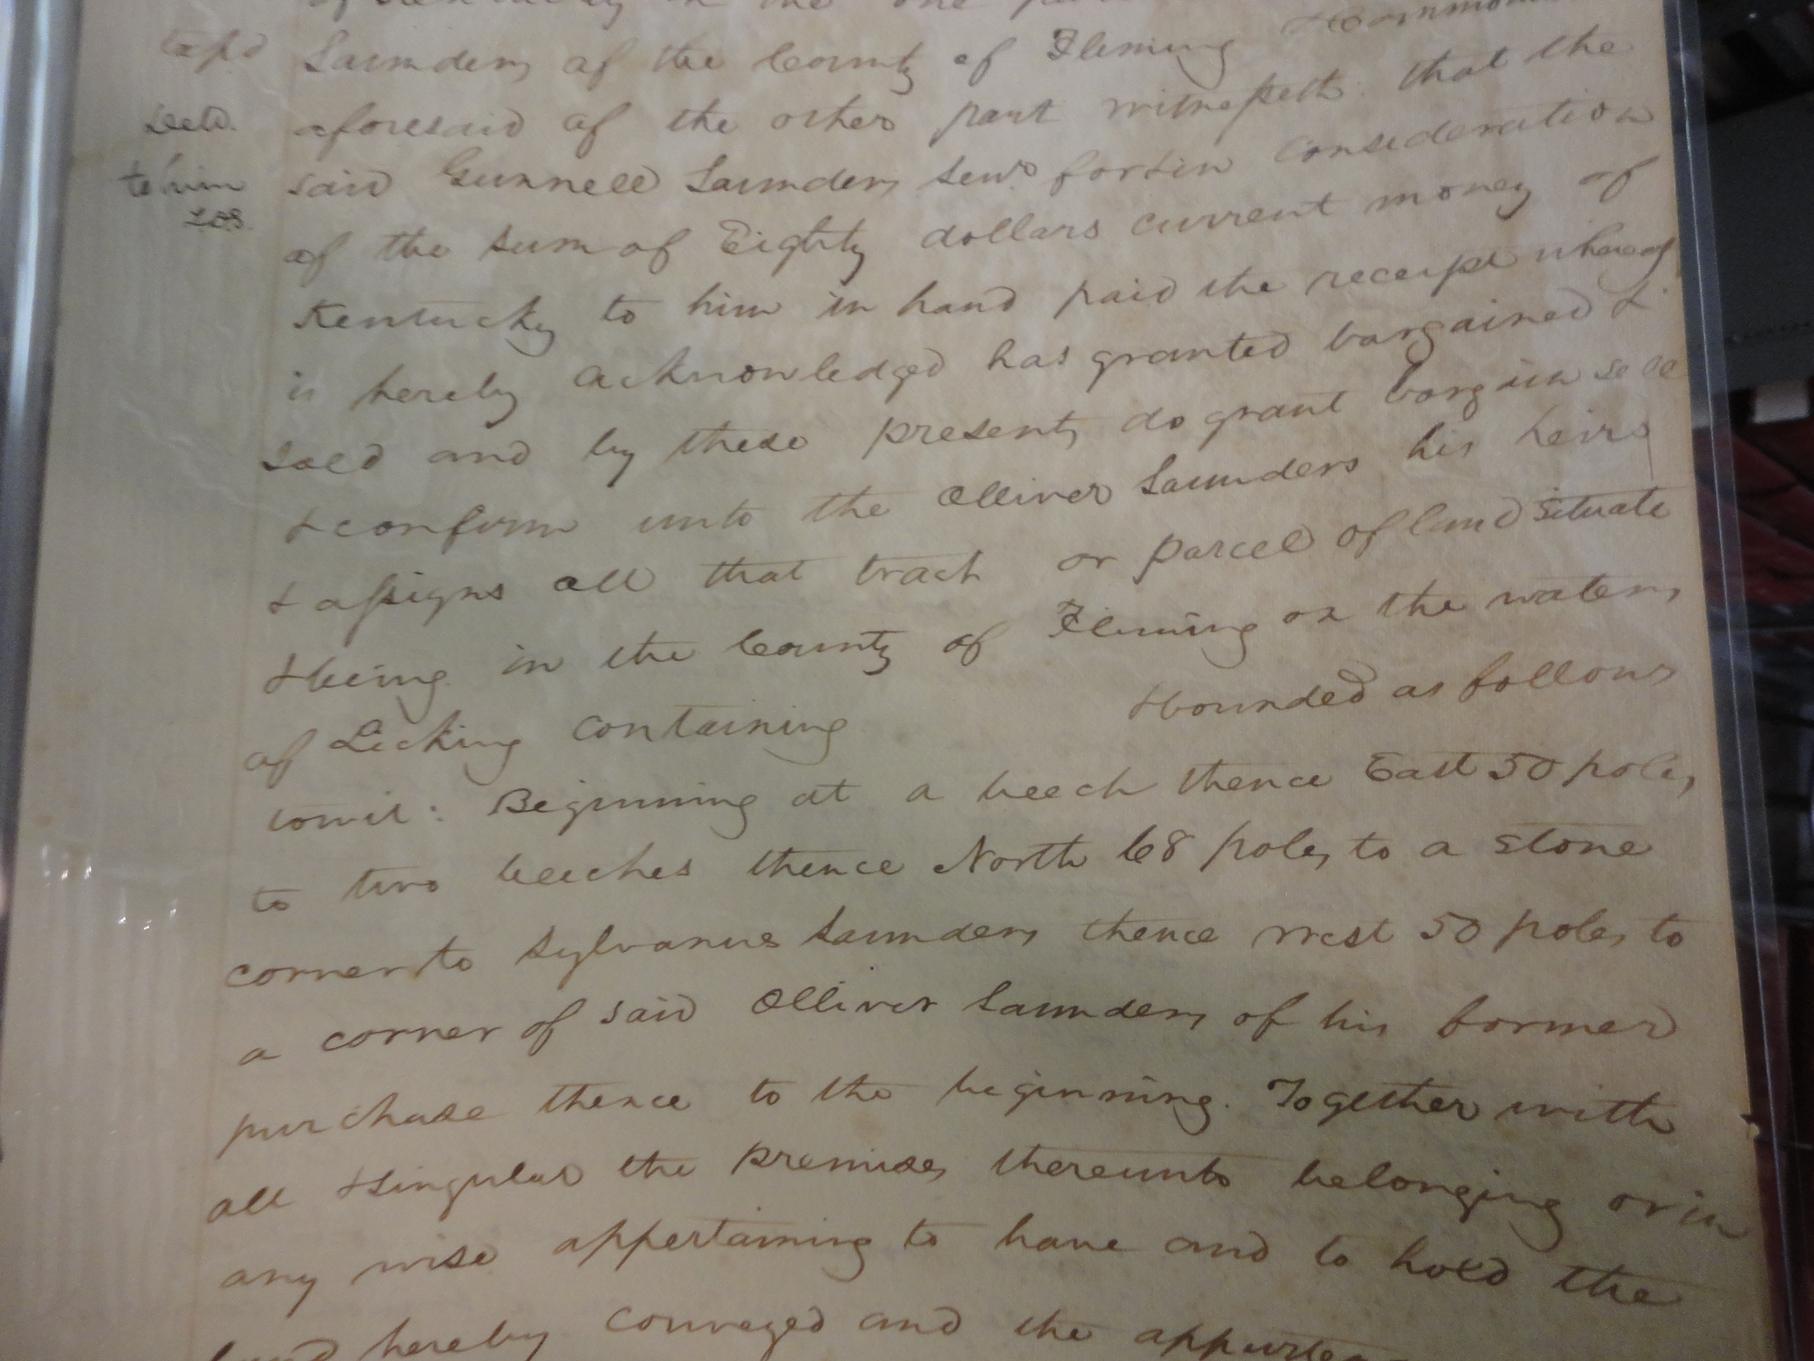 of Kentucky of the one part
Saunders of the County of Fleming & Commonwealth
aforesaid of the other part witnesseth that the
Deld.
said Gunnell Saunders Senr for & in consideration
to him
of the sum of Eighty dollars current money of
Kentucky to him in hand paid the receipt whereof
is hereby acknowledged has granted bargained &
sold and by these presents do grant bargain sell
& confirm unto the Olliver Saunders his heirs
& assigns all that tract or parcel of land situate
& being in the County of Fleming on the waters
of Licking containing & bounded as follows
towit: Beginning at a beech thence East 50 poles
to two beeches thence North 68 poles to a stone
corner to Sylvanus Saunders thence west 50 poles to
a corner of said Olliver Saunders of his former
purchase thence to the beginning. Together with
all & singular the premises thereunto belonging or in
any wise appertaining to have and to hold the
land hereby conveyed and the